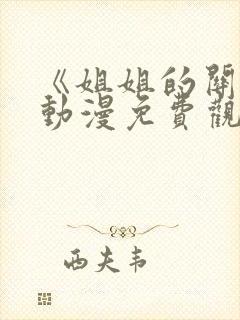 《姐姐的關
動漫免費觀
西夫韦